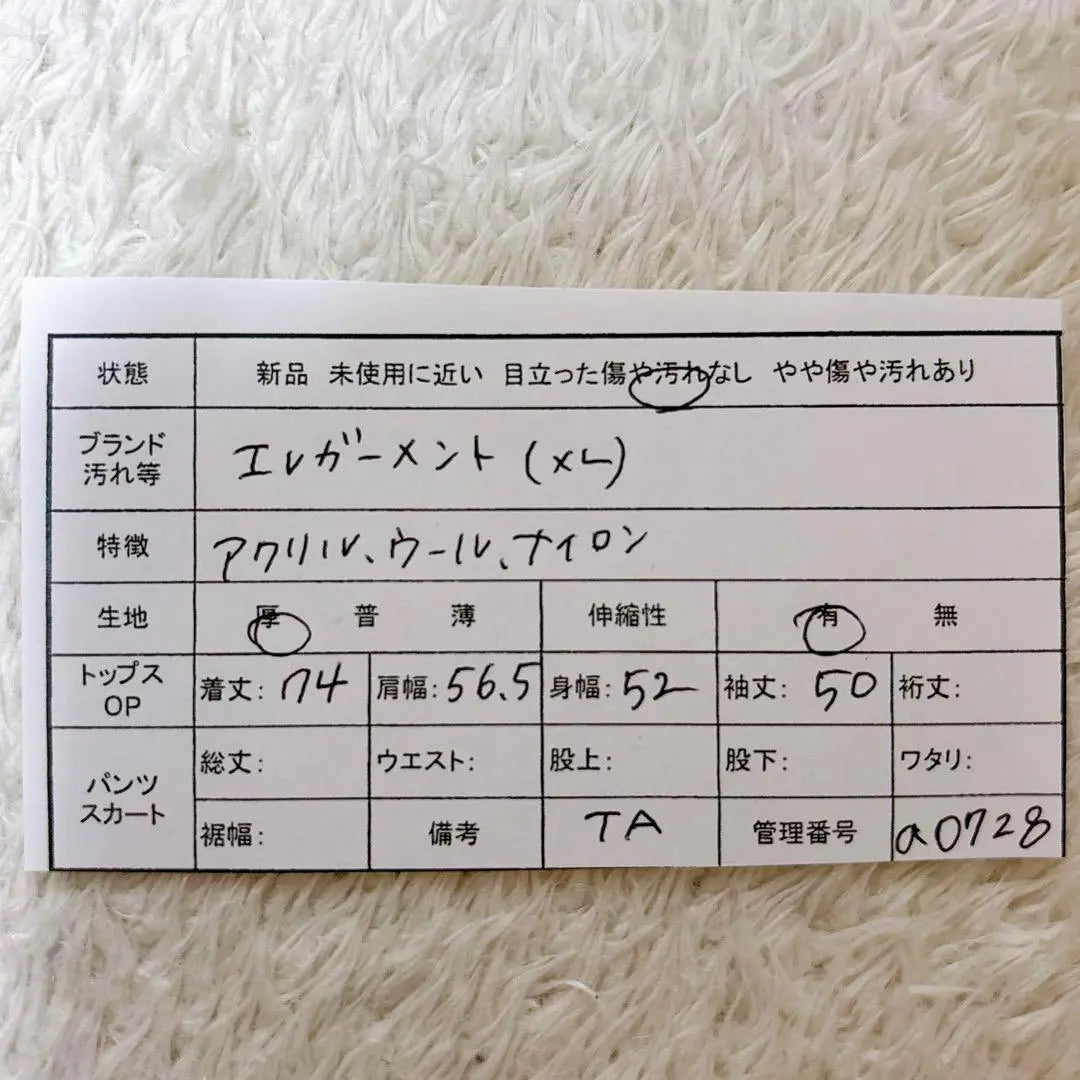 状態 新品 未使用に近い 目立った傷や汚れなし やや傷や汚れあり
ブランド
汚れ等
エレガーメント (XL)
特徴 アクリル、ウール、ナイロン
生地 厚 普 薄 伸縮性 有 無
トップス
OP
着丈: 74 肩幅: 56.5 身幅: 52 袖丈: 50 裄丈:
パンツ
スカート
総丈: ウエスト: 股上: 股下: ワタリ:
裾幅: 備考 TA 管理番号 a0728